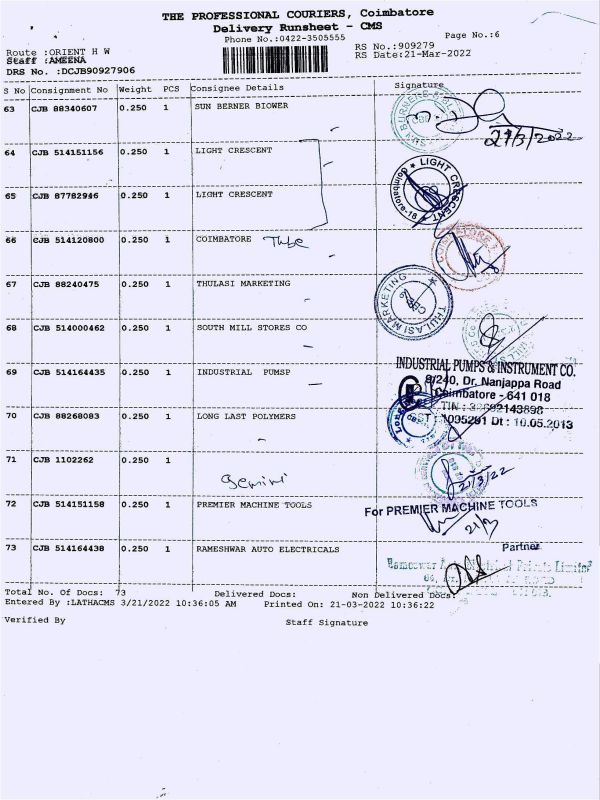 THE PROFESSIONAL COURIERS, Coimbatore
Delivery Runsheet - CMS
Phone No.:0422-3505555
Page No.:6
Route :ORIENT H W
RS No.:909279
Staff :AMEENA
RS Date:21-Mar-2022
DRS No. :DCJB90927906
S No Consignment No Weight PCS Consignee Details Signature
63 CJB 88340607 0.250 1 SUN BERNER BIOWER
27/3/2022
64 CJB 514151156 0.250 1 LIGHT CRESCENT
LIGHT CRESCENT
Coimbatore-18
65 CJB 87782946 0.250 1 LIGHT CRESCENT
66 CJB 514120800 0.250 1 COIMBATORE Tube
67 CJB 88240475 0.250 1 THULASI MARKETING
THULASI MARKETING
CBE
68 CJB 514000462 0.250 1 SOUTH MILL STORES CO
69 CJB 514164435 0.250 1 INDUSTRIAL PUMSP
INDUSTRIAL PUMPS & INSTRUMENT CO.
8/240, Dr. Nanjappa Road
Coimbatore - 641 018
TIN : 33692143898
1095291 Dt : 10.05.2013
70 CJB 88268083 0.250 1 LONG LAST POLYMERS
71 CJB 1102262 0.250 1
Gemini
21/3/22
72 CJB 514151158 0.250 1 PREMIER MACHINE TOOLS
For PREMIER MACHINE TOOLS
21/3
Partner
73 CJB 514164438 0.250 1 RAMESHWAR AUTO ELECTRICALS
Total No. Of Docs: 73 Delivered Docs: Non Delivered Docs:
Entered By :LATHACMS 3/21/2022 10:36:05 AM Printed On: 21-03-2022 10:36:22
Verified By Staff Signature